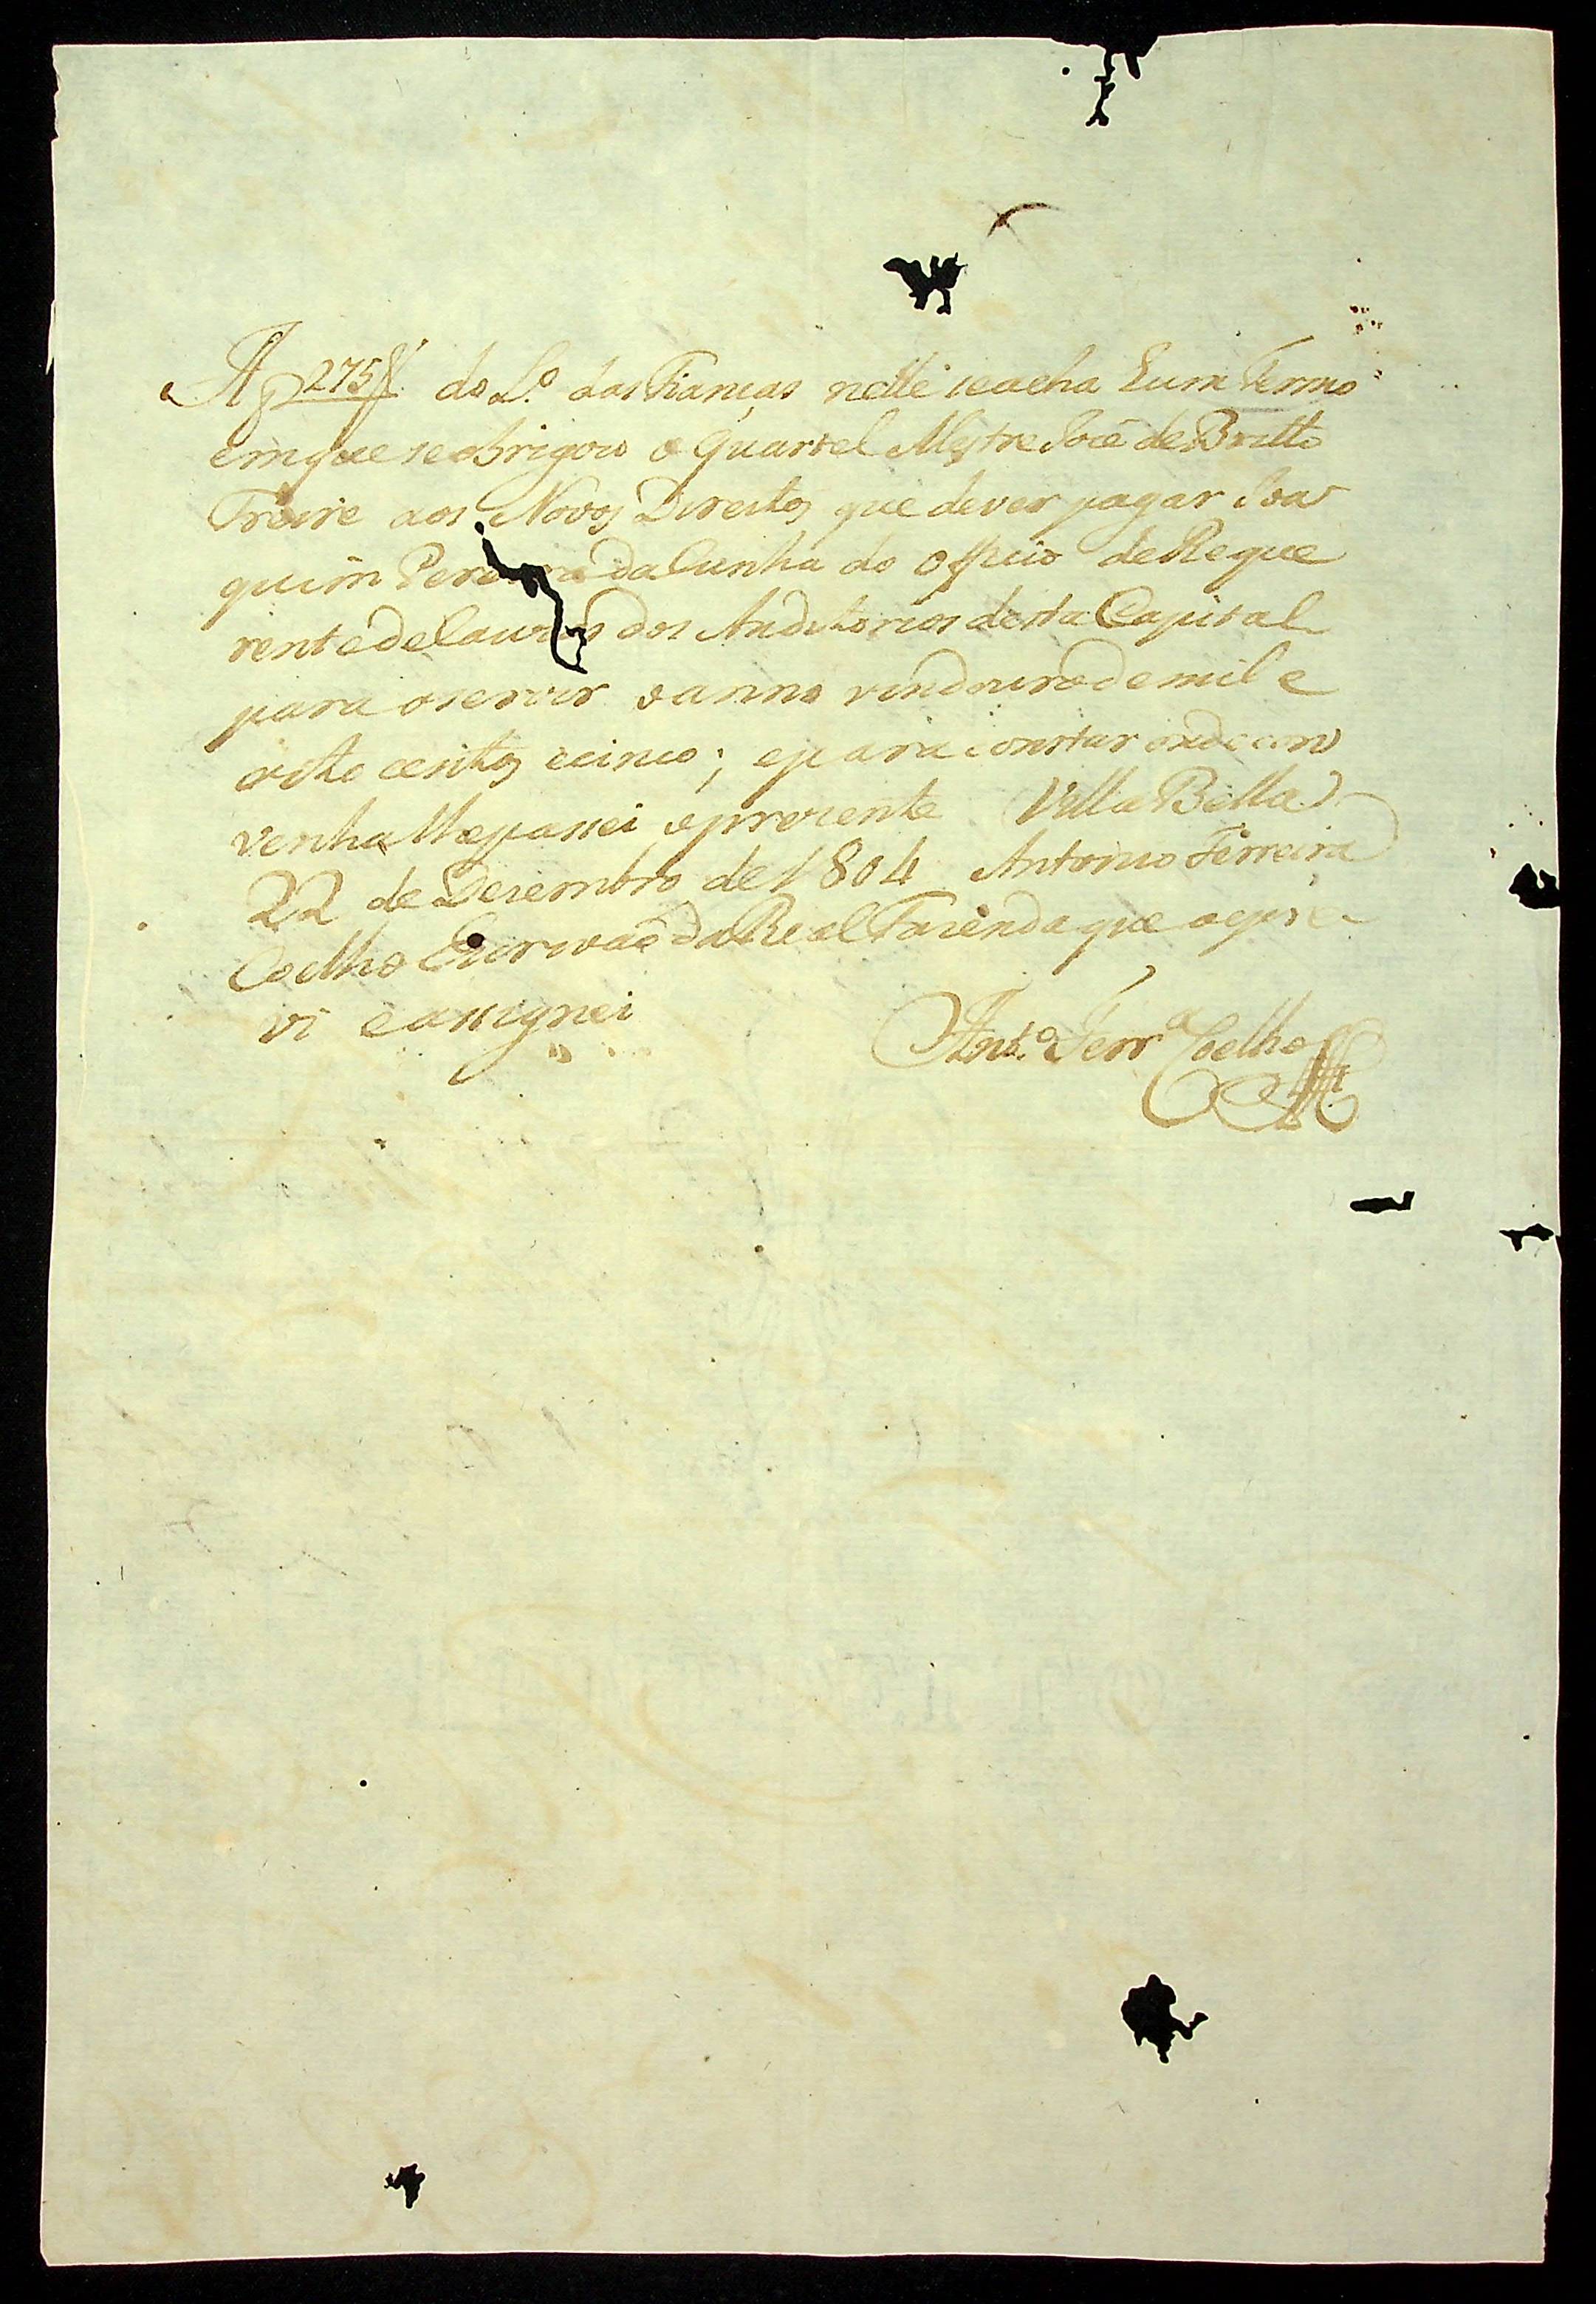 A f 275 V. do L.º das Fianças nelle seacha hum Termo
emque seobrigou o Quartel Mestre José de Britto
Freire aos Novos Direitos que dever pagar Joa
quim Pereira da Cunha do Officio de Reque
rente de Cauzas dos Auditorios desta Capital
para oservir o anno vindouro de mil e
oito centos ecinco; epara constar onde con
venha lhe passei oprezente Villa Bella
22 de Dezembro de 1804 Antonio Ferreira
Coelho Escrivaõ da Real Fazenda que oescre
vi eassignei
Ant.º Ferr.ª Coelho